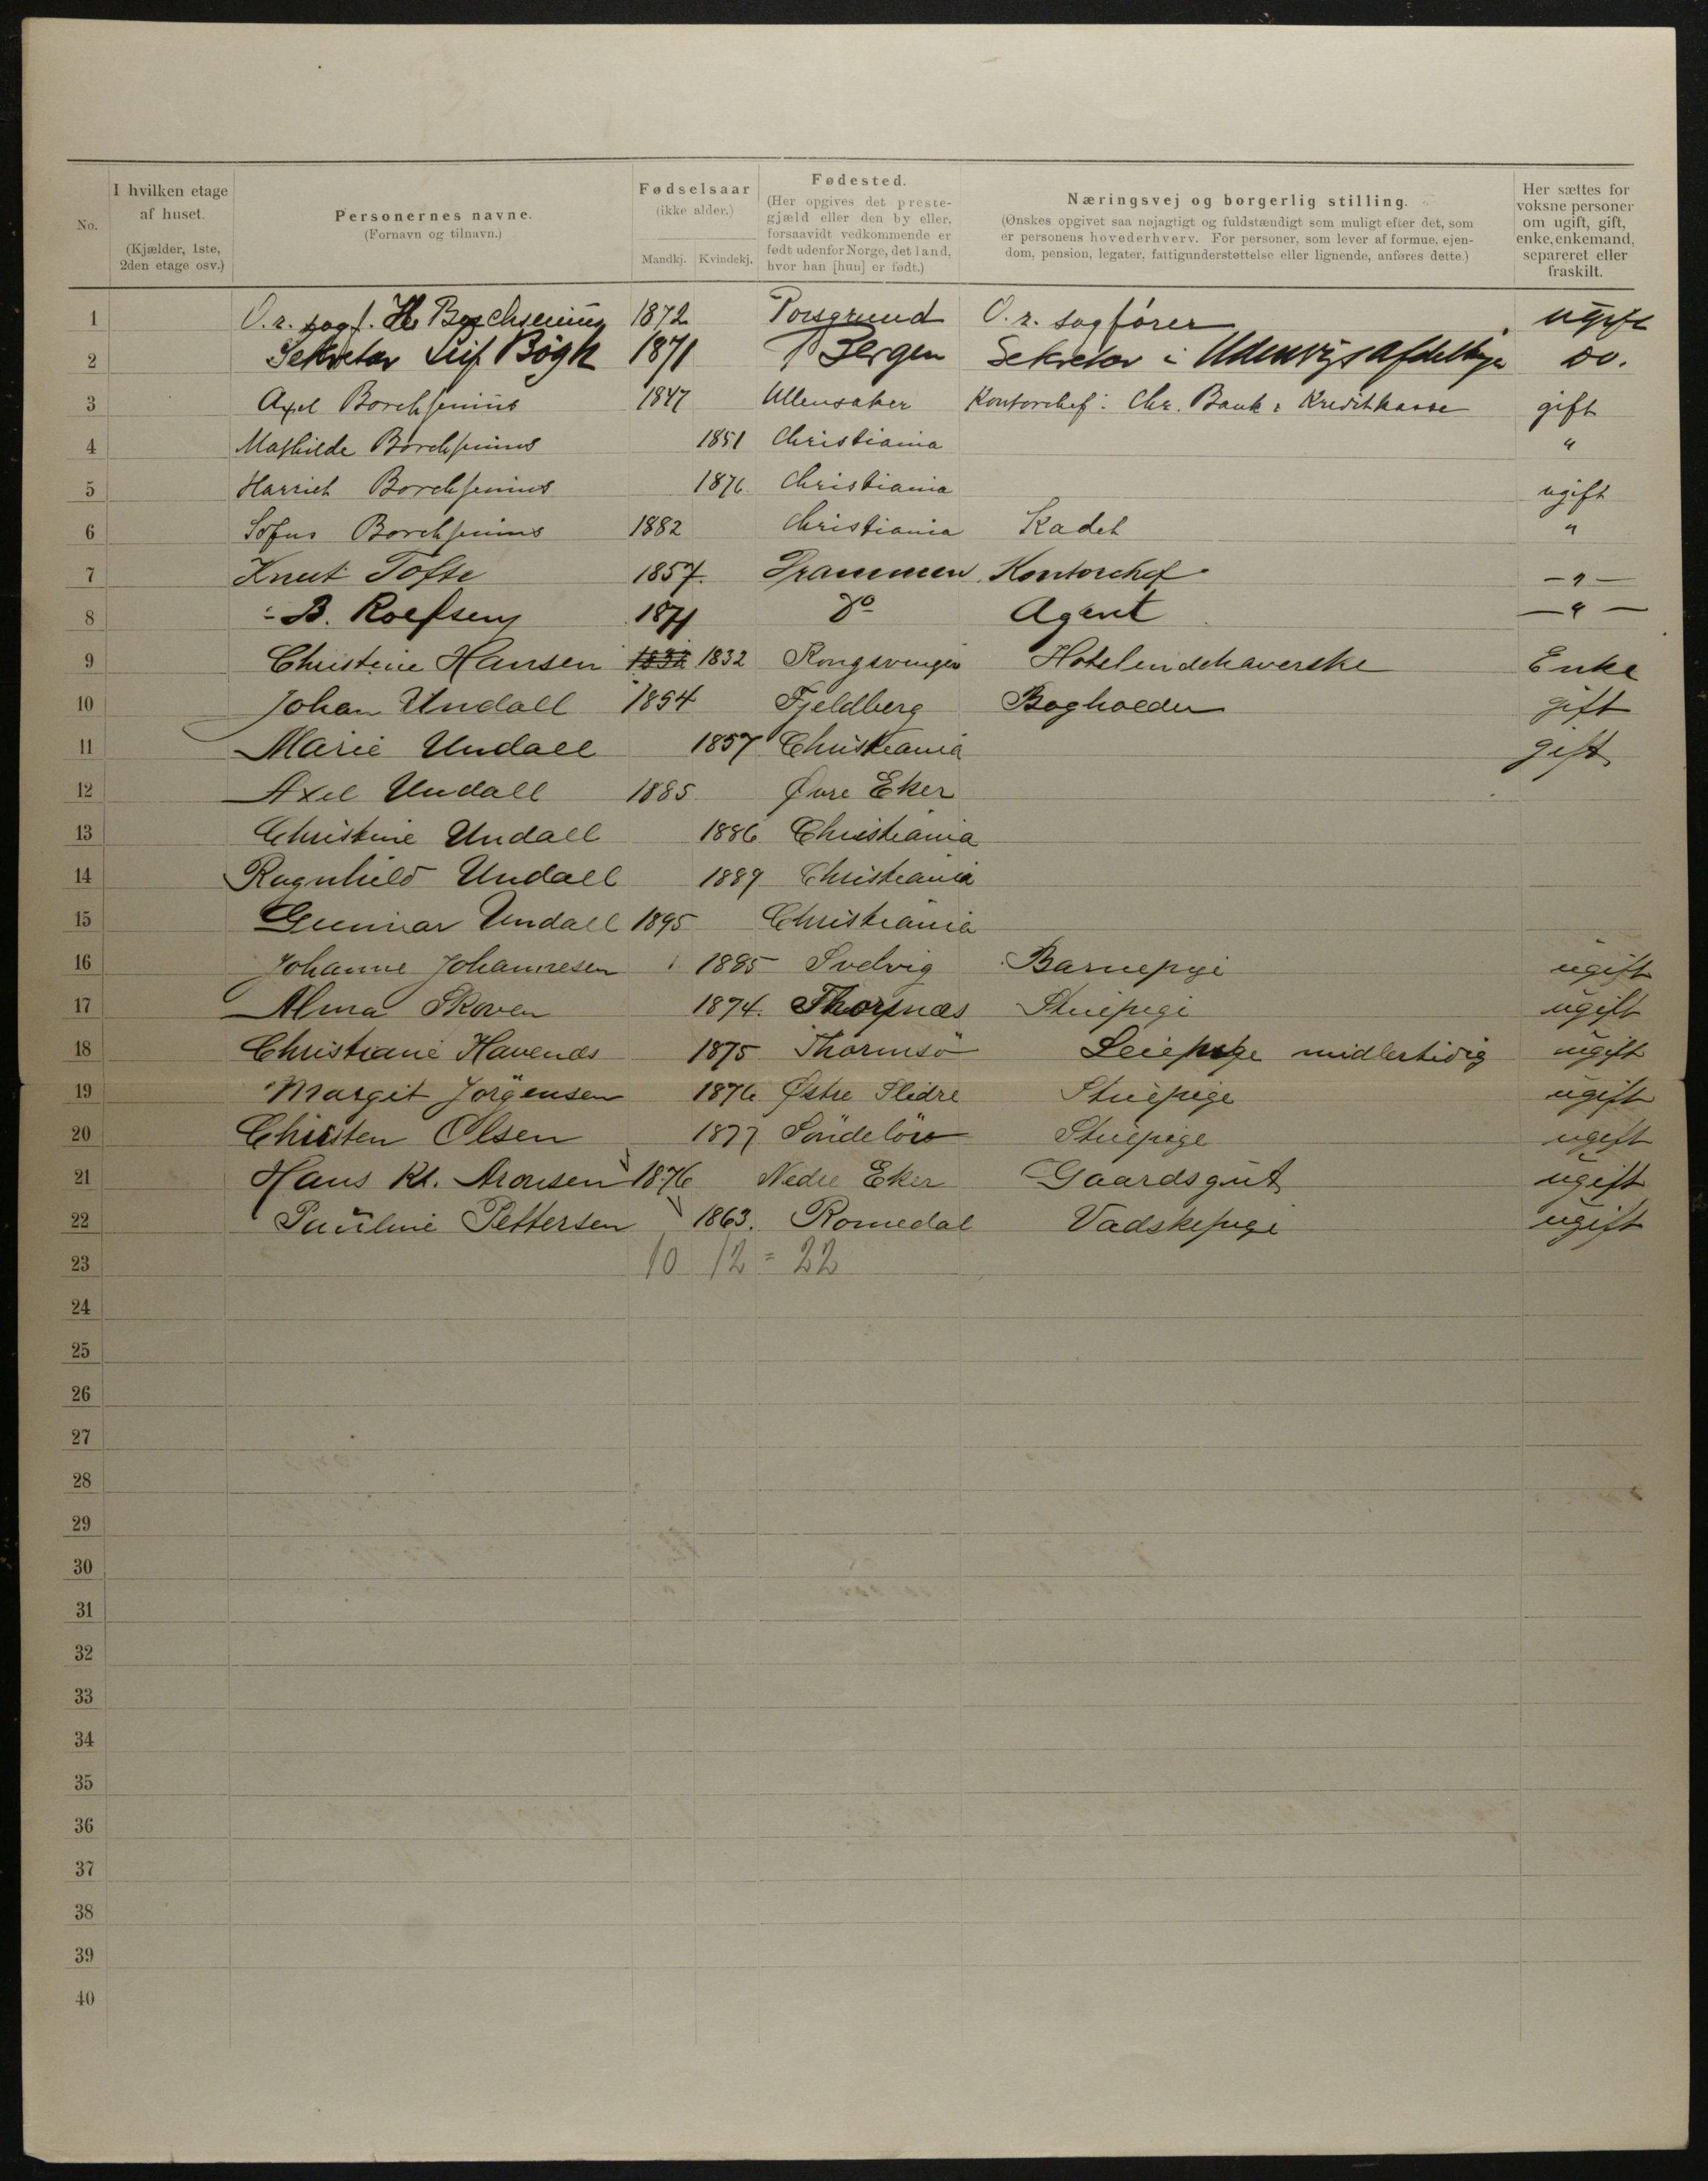 No.
I hvilken etage af huset. (Kjælder, 1ste, 2den etage osv.)
Personernes navne. (Fornavn og tilnavn.)
Fødselsaar (ikke alder.) Mandkj. Kvindekj.
Fødested. (Her opgives det prestegjæld eller den by eller, forsaavidt vedkommende er født udenfor Norge, det land, hvor han [hun] er født.)
Næringsvej og borgerlig stilling. (Ønskes opgivet saa nøjagtigt og fuldstændigt som muligt efter det, som er personens hovederhverv. For personer, som lever af formue, ejendom, pension, legater, fattigunderstøttelse eller lignende, anføres dette.)
Her sættes for voksne personer om ugift, gift, enke, enkemand, separeret eller fraskilt.
1 O.r. sagf. Borchsenius 1872 Porsgrund O.r. sagfører ugift
2 Sekretær Leif Bøgh 1871 Bergen Sekretær i do.
3 Axel Borchsenius 1847 Ullensaker Kontorchef i Chr. Bank & Kreditkasse gift
4 Mathilde Borchsenius 1851 Christiania "
5 Harriet Borchsenius 1876 Christiania ugift
6 Sofus Borchsenius 1882 Christiania Kadet "
7 Knut Tofte 1857. Drammen Kontorchef — " —
8 B. Roefsen 1871 do Agent — " —
9 Christine Hansen 1832 1832 Kongsvinger Hotelindehaverske Enke
10 Johan Undall 1854 Fjeldberg Bogholder gift
11 Marie Undall 1857 Christiania gift
12 Axel Undall 1885 Øvre Eker
13 Christine Undall 1886 Christiania
14 Ragnhild Undall 1889 Christiania
15 Gunnar Undall 1895 Christiania
16 Johanne Johannesen 1885 Svelvig Barnepige ugift
17 Alma Skoven 1874. Thorsnæs Stuepige ugift
18 Christiane Havends 1875 Thormsö Leiepige midlertidig ugift
19 Margit Jörgensen 1876 Østre Slidre Stuepige ugift
20 Christen Olsen 1877 Söndelöv Stuepige ugift
21 Hans Kr. Aronsen 1876 Nedre Eker Gaardsgut ugift
22 Pauline Pettersen 1863. Romedal Vadskepige ugift
23 10 12 = 22
24
25
26
27
28
29
30
31
32
33
34
35
36
37
38
39
40